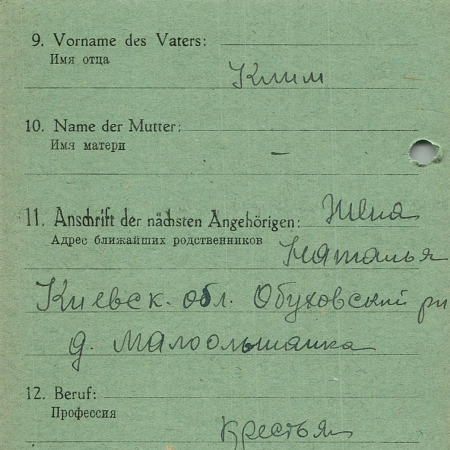 9. Vorname des Vaters:
Имя отца
Клим
10. Name der Mutter:
Имя матери
—
11. Anschrift der nächsten Angehörigen: Жена
Адрес ближайших родственников Наталья
Киевск. обл. Обуховский рн
д. Малоольшанка
12. Beruf:
Профессия
Крестьян